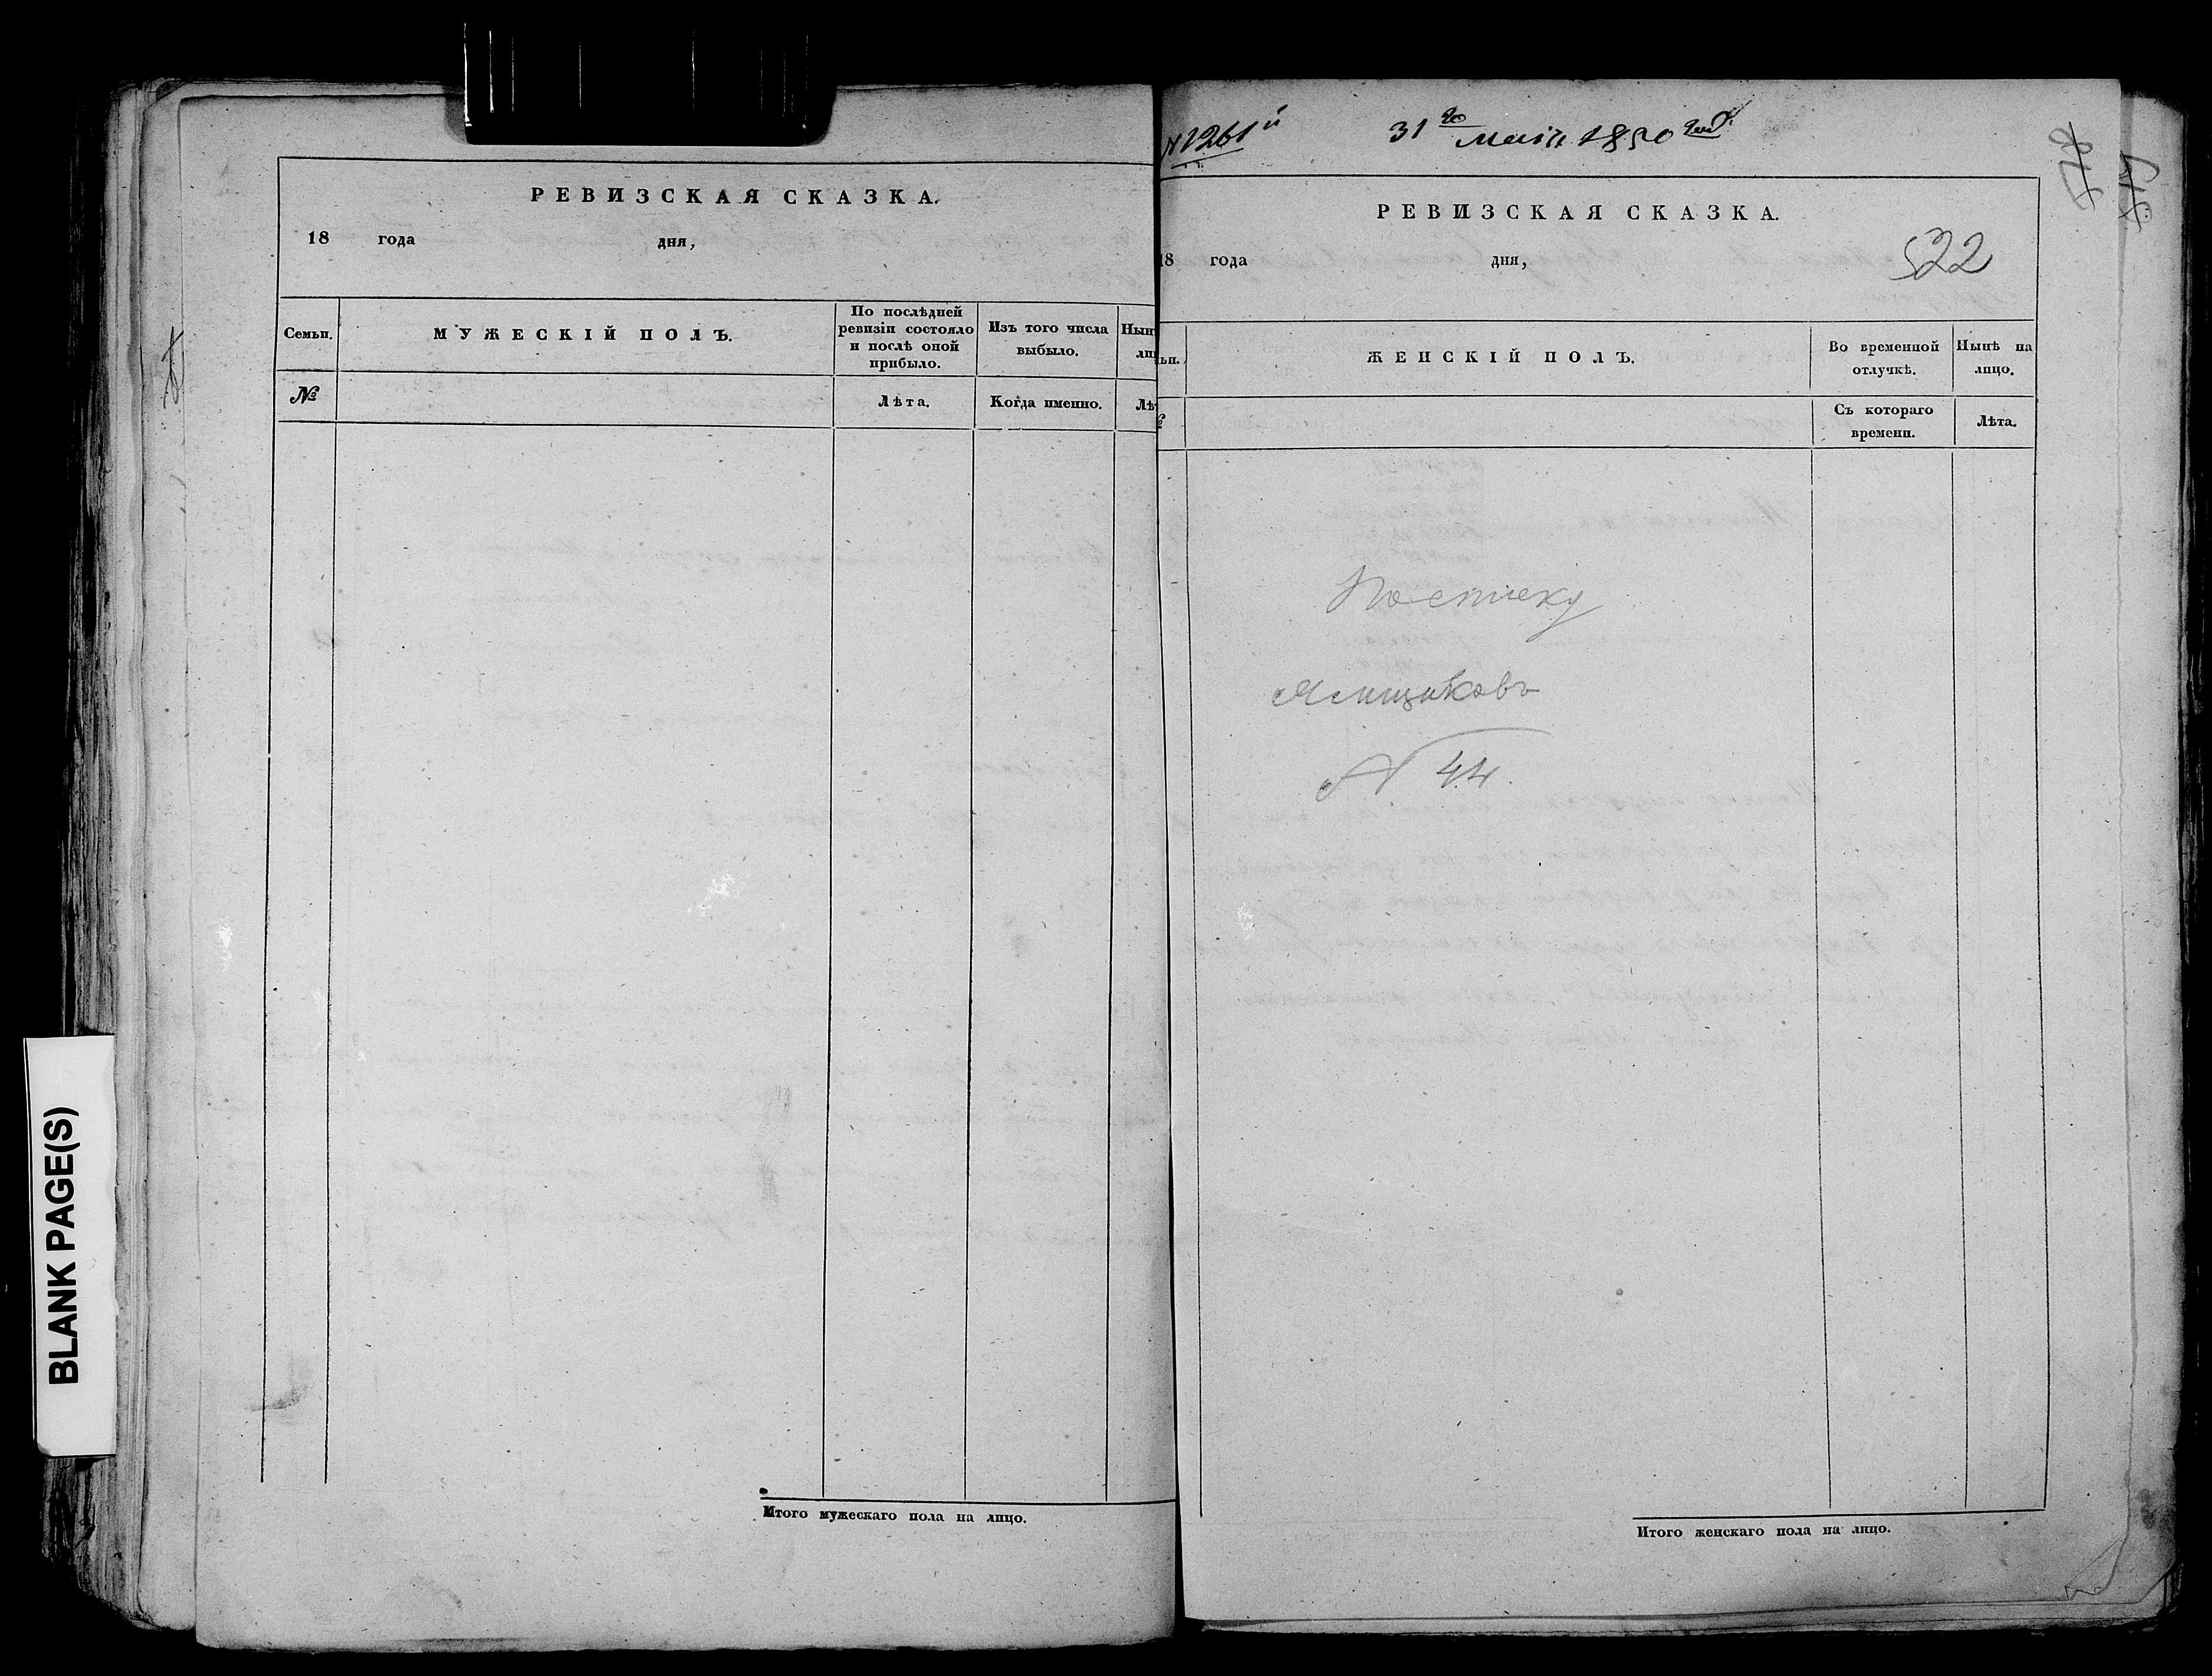 РЕВИЗСКАЯ СКАЗКА.
18 года дня,
Семьи. МУЖЕСКІЙ ПОЛЪ. По послѣдней ревизіи состояло и послѣ оной прибыло. Изъ того числа выбыло.
№ Лѣта. Когда именно.
Итого мужескаго пола на лицо.
№ 1261й 31го Маія 1850 года
РЕВИЗСКАЯ СКАЗКА.
18 года дня,
522
ЖЕНСКІЙ ПОЛЪ. Во временной отлучкѣ. Нынѣ на лицо.
Съ котораго времени. Лѣта.
По списку
Ямщиковъ
№ 44.
Итого женскаго пола на лицо.
BLANK PAGE(S)